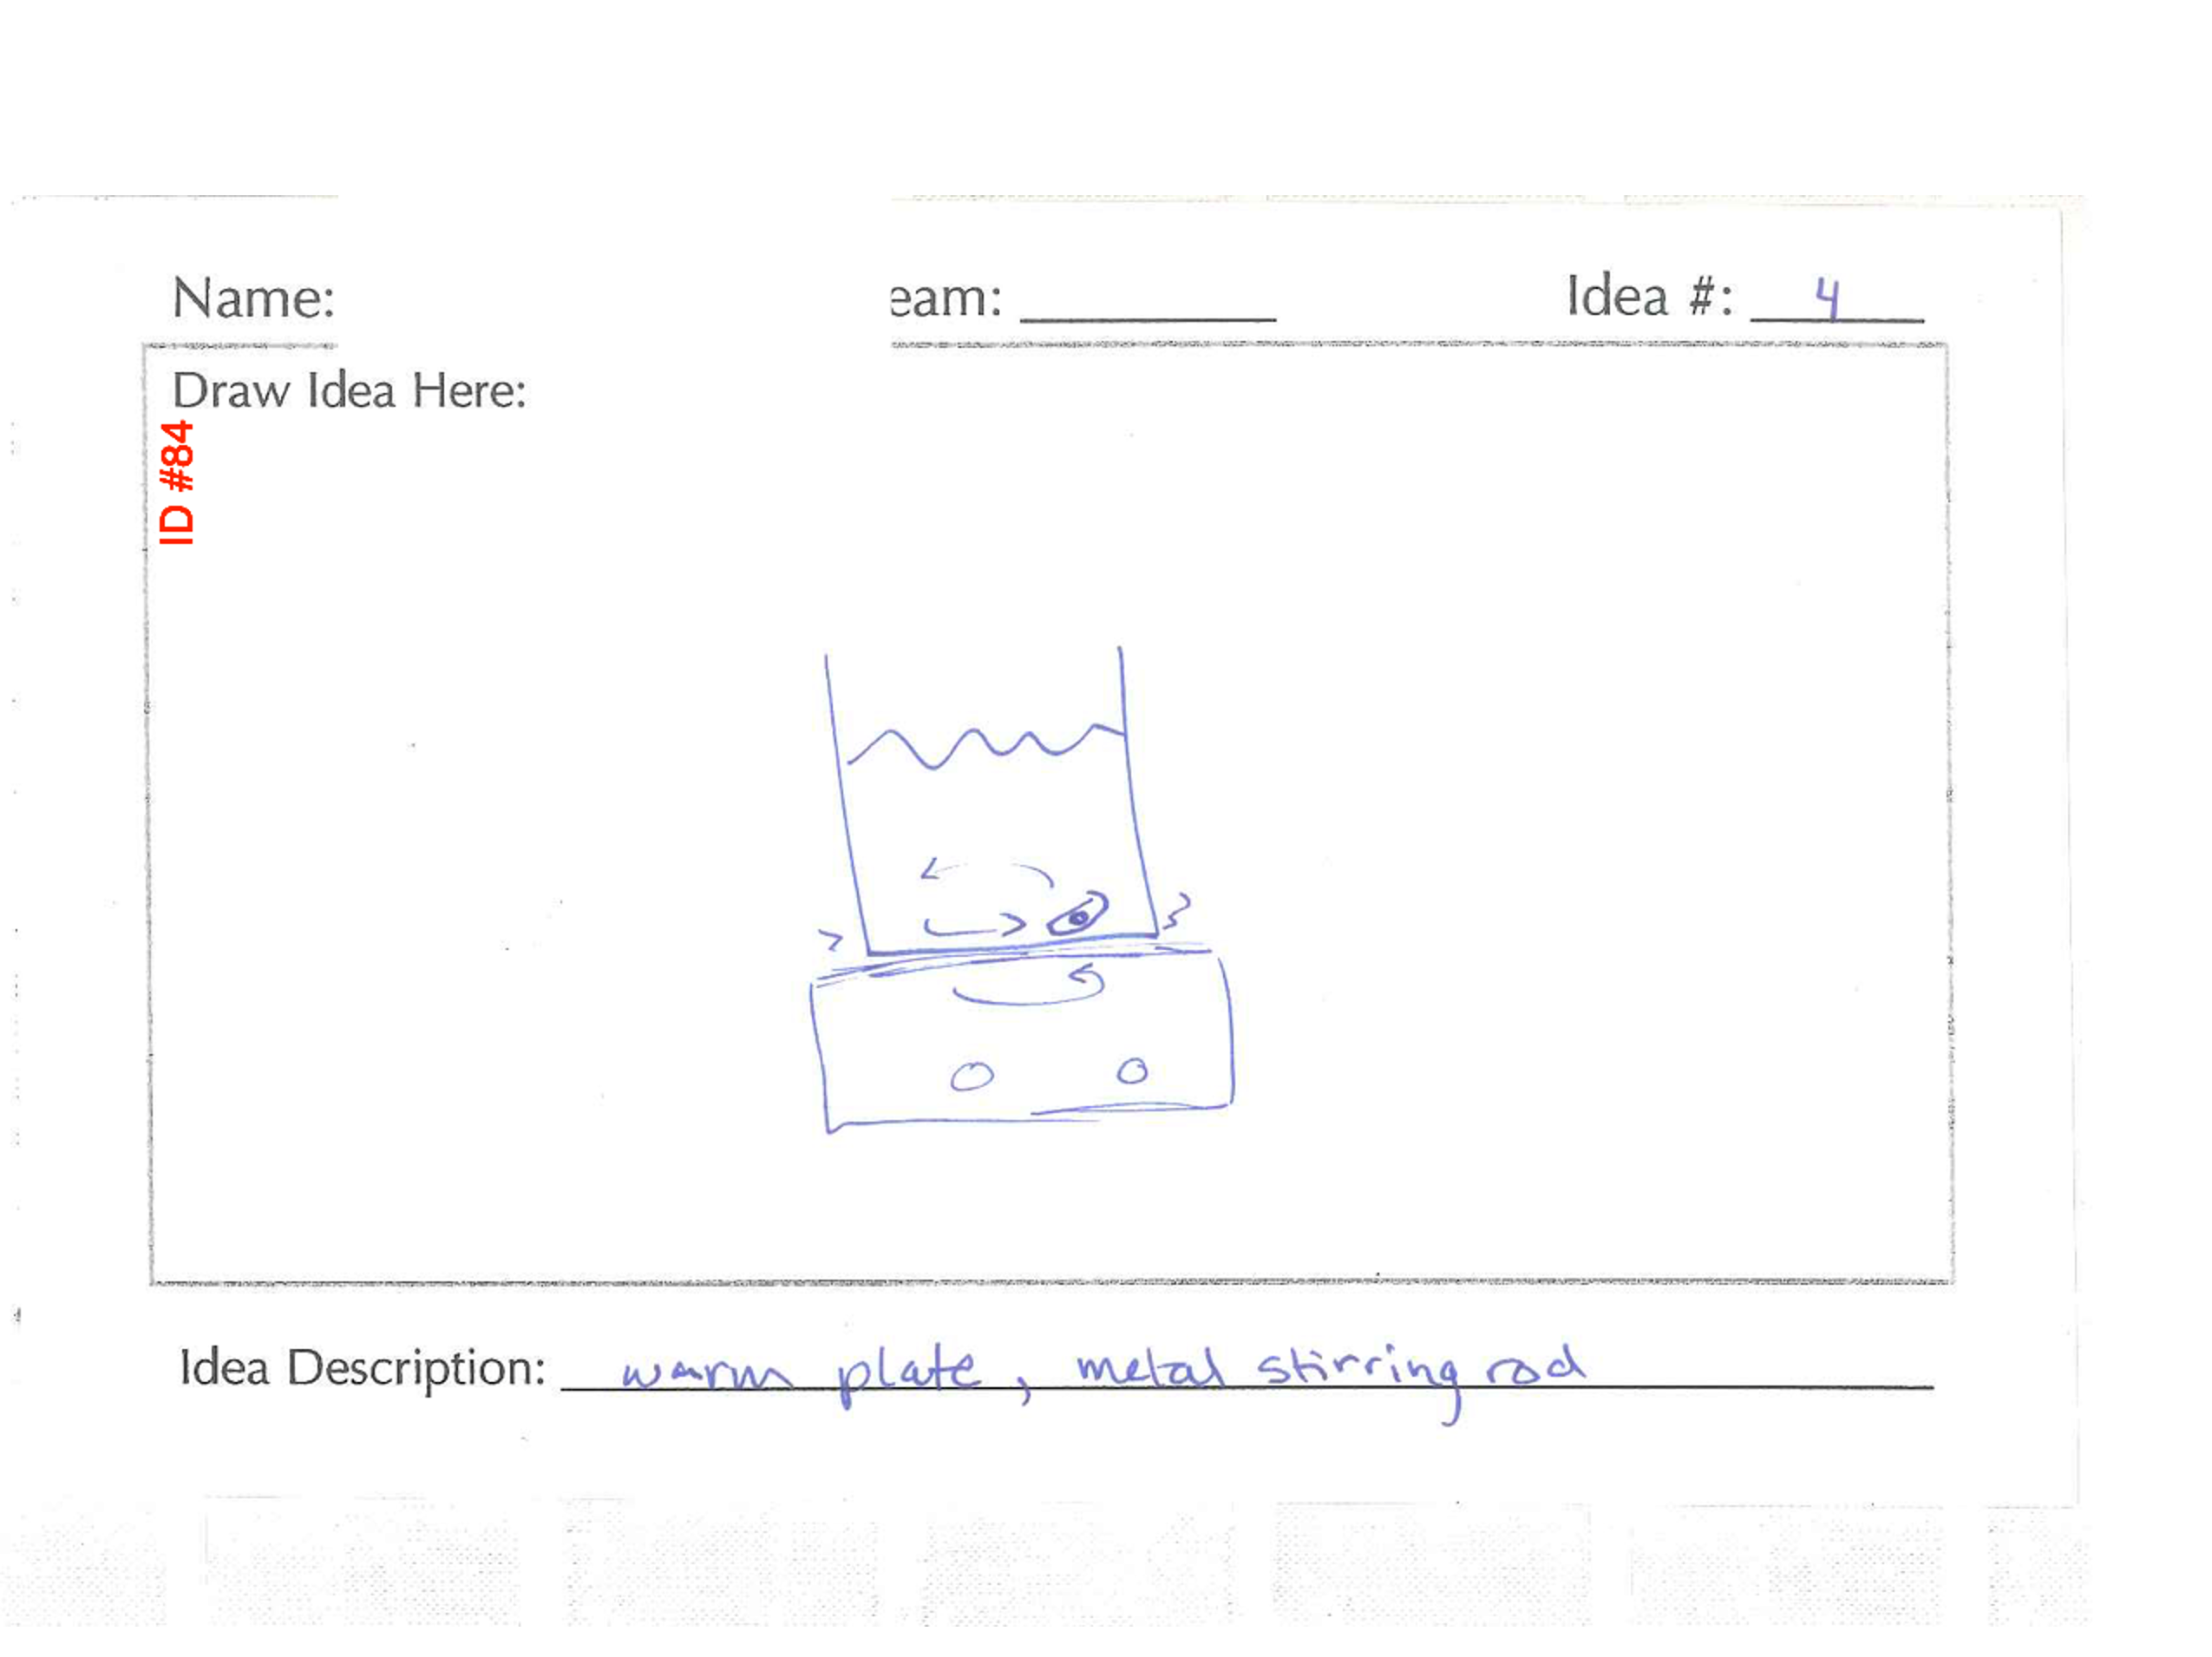 Name: eam: Idea #: 4
Draw Idea Here:
ID #84
Idea Description: warm plate, metal stirring rod